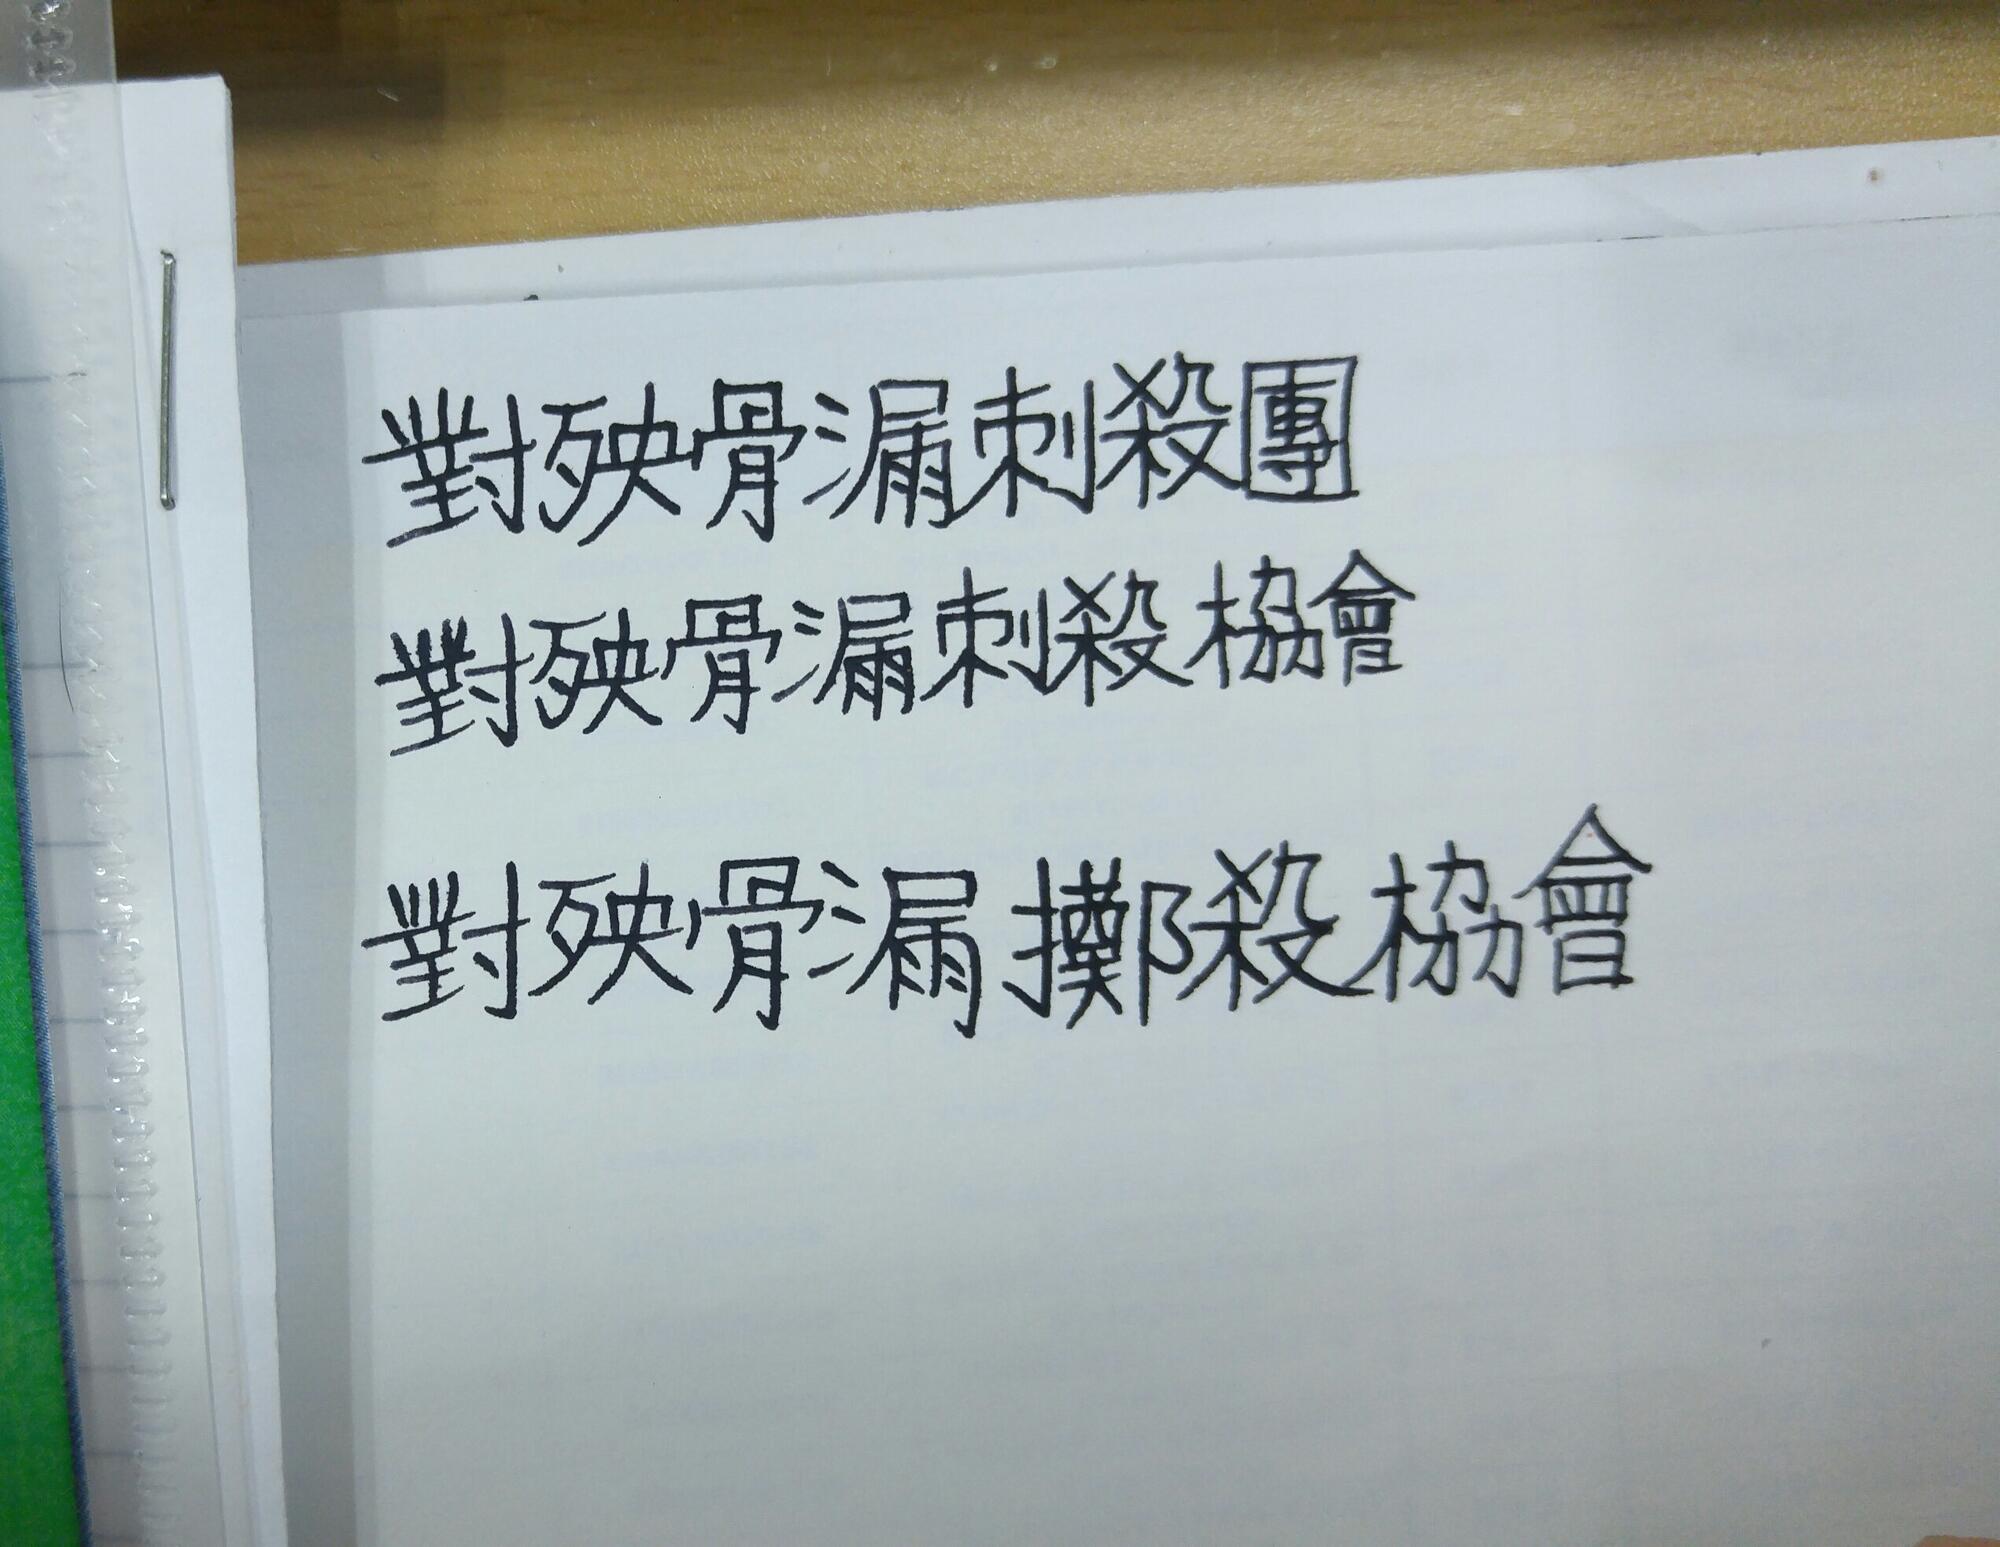 對殃骨漏刺殺團
對殃骨漏刺殺協會
對殃骨漏擲殺協會